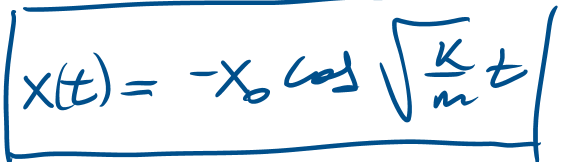 x(t) = -x₀ cos √(k/m) t